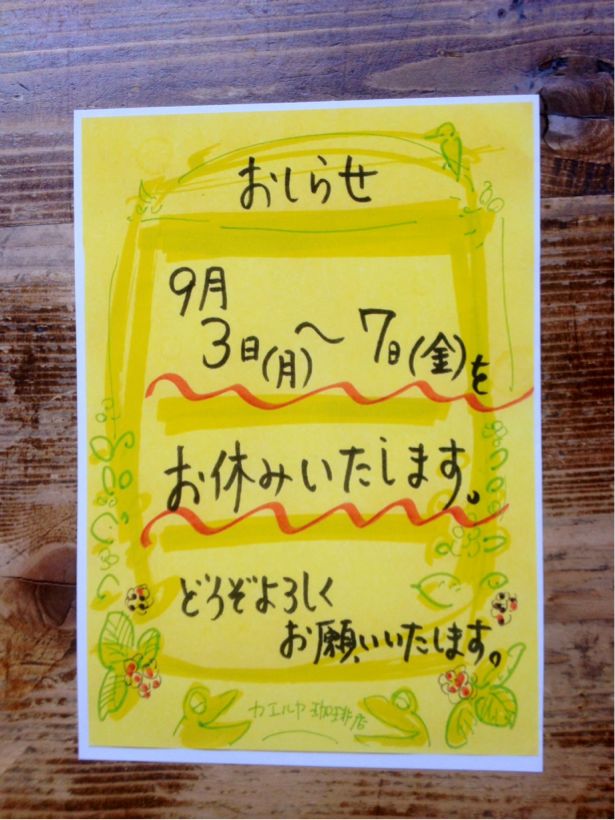 おしらせ
9月
3日(月)〜7日(金)を
お休みいたします。
どうぞよろしく
お願いいたします。
カエルヤ珈琲店